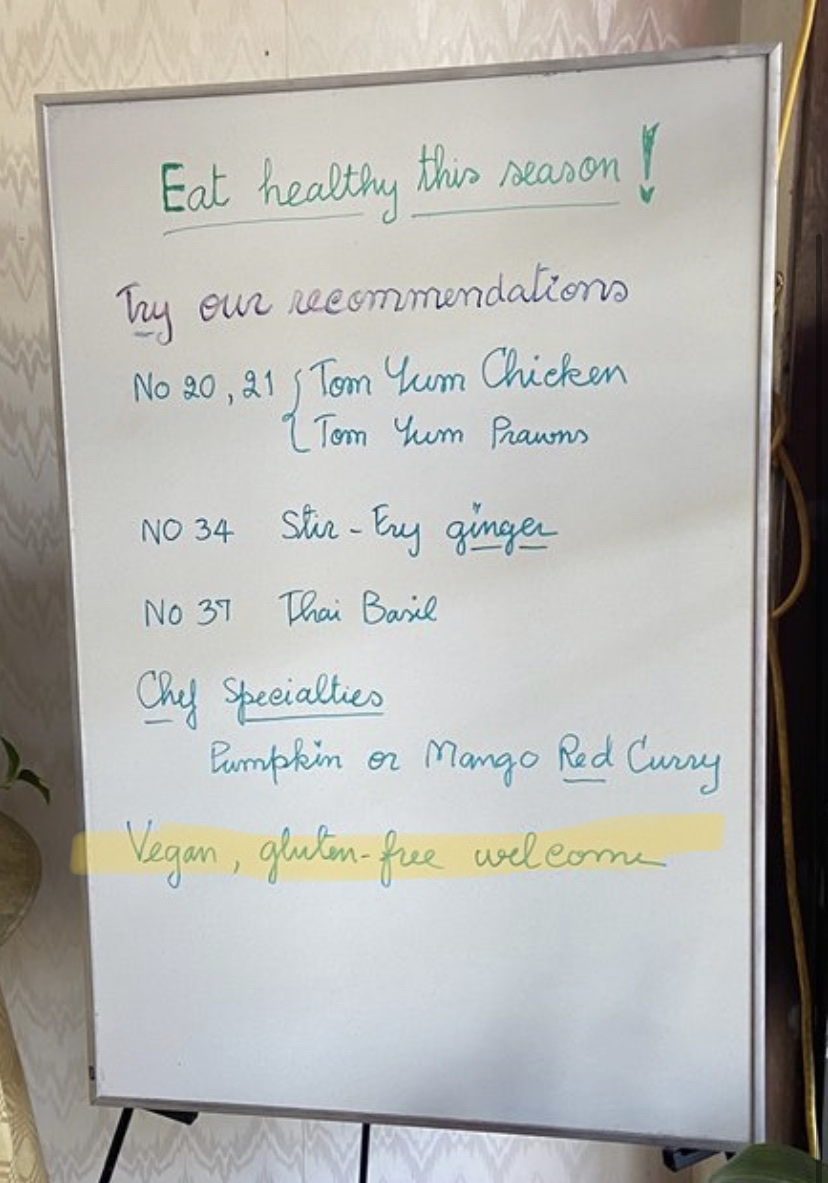 Eat healthy this season!
Try our recommendations
No 20, 21 { Tom Yum Chicken
Tom Yum Prawns
NO 34 Stir-Fry ginger
No 37 Thai Basil
Chef Specialties
Pumpkin or Mango Red Curry
Vegan, gluten-free welcome